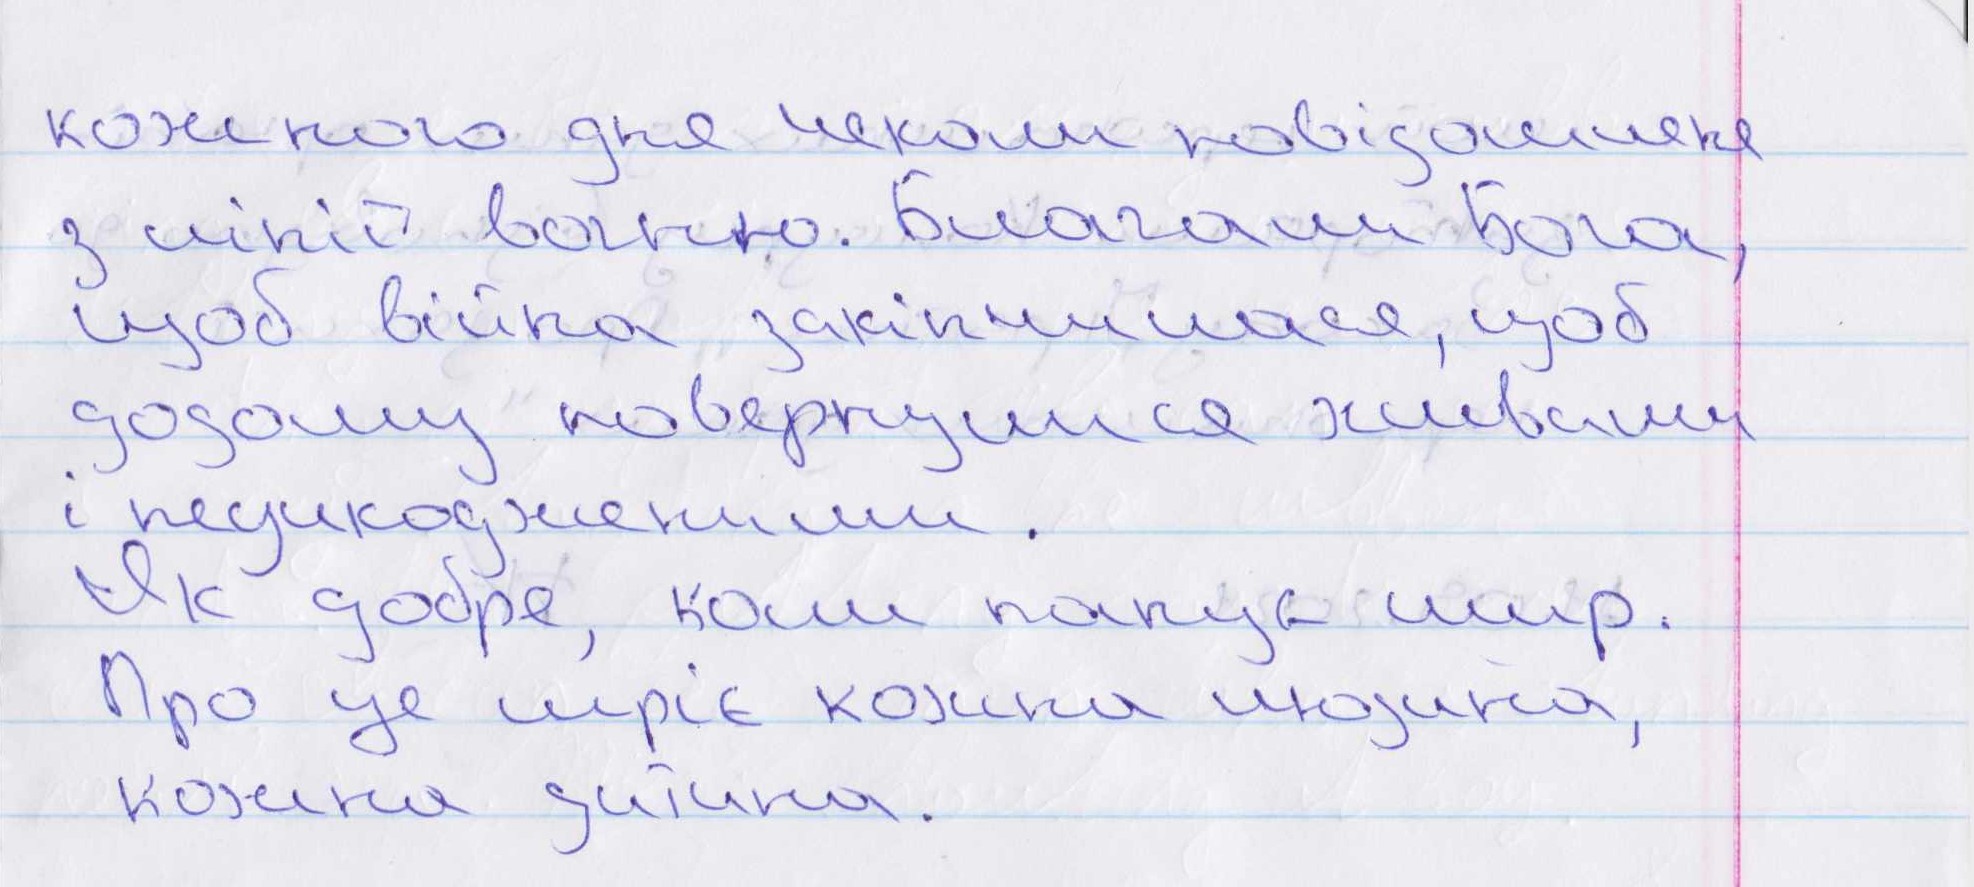 кожного дня чекали повідомлене
з лінії вогню. Благали Бога,
щоб війна закінчилася, щоб
додому повернулися живими
і неушкодженими.
Як добре, коли панує мир.
Про це мріє кожна людина,
кожна дитина.